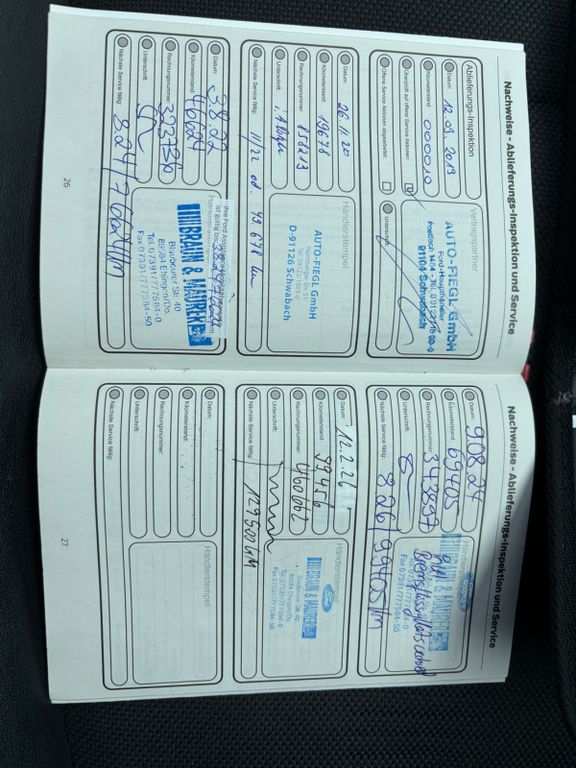 Nachweise - Ablieferungs-Inspektion und Service
Ablieferungs-Inspektion
Datum: 12.09.2019
Kilometerstand: 000010
Überprüft auf offene Service Aktionen:
Offene Service Aktionen abgearbeitet:
Vertragspartner
AUTO-FIEGL GmbH
Ford-Haupthändler
91104 Schwabach
Unterschrift:
Datum: 26.11.20
Kilometerstand: 19678
Rechnungsnummer: 856213
Unterschrift:
Nächste Service fällig: 11/22 od. 49 678 km
Händlerstempel
AUTO-FIEGL GmbH
D-91126 Schwabach
Datum: 3.8.22
Kilometerstand: 46664
Rechnungsnummer: 323736
Unterschrift:
Nächste Service fällig: 8.24/76664KM
BRAUN & MAURER
Blaubeurer Str. 40
89584 Ehingen/Do.
Tel. 07391/777584-0
Fax 07391/777584-50
26
Nachweise - Ablieferungs-Inspektion und Service
Datum: 9.08.24
Kilometerstand: 69405
Rechnungsnummer: 343897
Unterschrift:
Nächste Service fällig: 8.26/99405KM
Händlerstempel
BRAUN & MAURER
Fax 07391/777584-50
Datum: 12.2.26
Kilometerstand: 99456
Rechnungsnummer: 460662
Unterschrift:
Nächste Service fällig: 129500KM
Händlerstempel
Ford
BRAUN & MAURER
Blaubeurer Str. 40
89584 Ehingen/Do.
Tel. 07391/777584-0
Fax 07391/777584-50
Datum:
Kilometerstand:
Rechnungsnummer:
Unterschrift:
Nächste Service fällig:
Händlerstempel
27